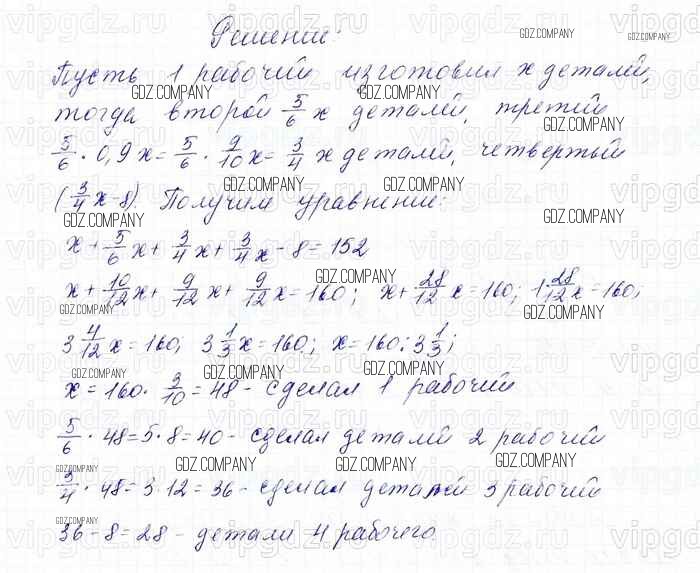 Решение:
Пусть 1 рабочий изготовил x деталей,
тогда второй 5/6 x деталей, третий
5/6 · 0,9x = 5/6 · 9/10 x = 3/4 x деталей, четвертый
(3/4 x - 8). Получим уравнение:
x + 5/6 x + 3/4 x + 3/4 x - 8 = 152
x + 10/12 x + 9/12 x + 9/12 x = 160; x + 28/12 x = 160; 1 28/12 x = 160;
3 4/12 x = 160; 3 1/3 x = 160; x = 160 : 3 1/3;
x = 160 · 3/10 = 48 - сделал 1 рабочий
5/6 · 48 = 5 · 8 = 40 - сделал деталей 2 рабочий
3/4 · 48 = 3 · 12 = 36 - сделал деталей 3 рабочий
36 - 8 = 28 - детали 4 рабочего
vipgdz.ru
GDZ.COMPANY